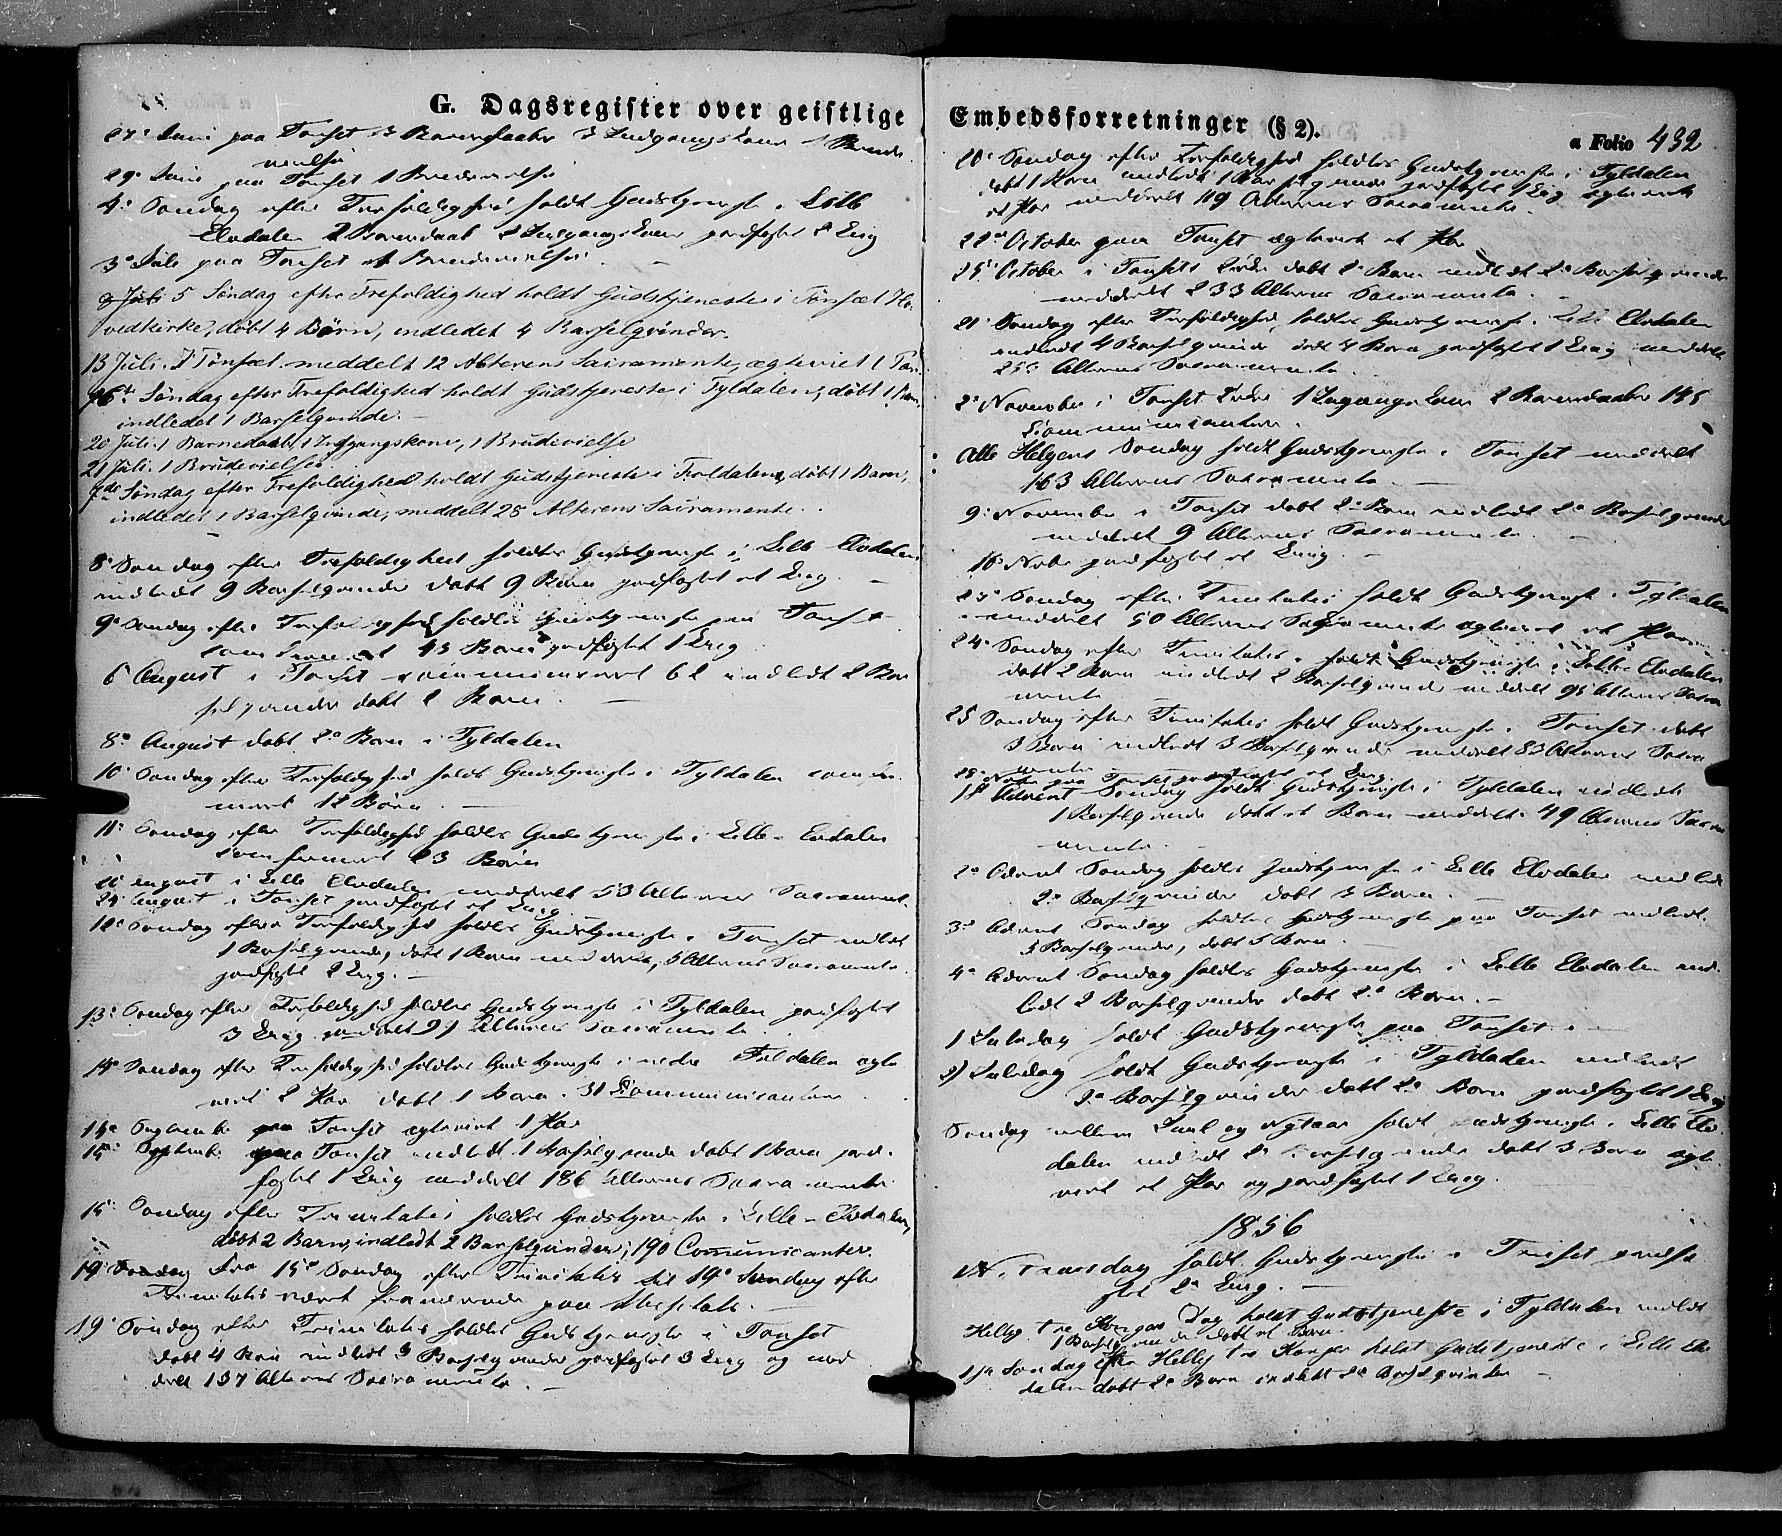 G. Dagsregister over geistlige
27de Juni paa Tonset 3 Barnedaaber 3 Indgangskoner 1 Brude
vielse
29de Juni paa Tonset 1 Brudevielse
4de Søndag efter Trefoldighed holdt Gudstjeneste i Lille
Elvdalen 2 Barnedaab 2 Indgangskoner jordfæstet 2 Liig
3de Juli paa Tonset et Brudevielse.
8 Juli 5 Søndag efter Trefoldighed holdt Gudstjeneste i Tønset Ho-
vedkirke, døbt 4 Børn, indledet 4 Barselqvinder.
13 Juli. I Tønset meddelt 12 Alterens Sacramente, ægteviet 1 Par.
6te Søndag efter Trefoldighed holdt Gudstjeneste i Tyldalen, døbt 1 Barn,
indledet 1 Barselqvinde. –
20 Juli. 1 Barnedaab, 1 Indgangskone, 1 Brudevielse
21 Juli. 1 Brudevielse.
7de Søndag efter Trefoldighed holdt Gudstjeneste i Tyldalen, døbt 1 Barn,
indledet 1 Barselqvinde, meddelt 28 Alterens Sacramente.
8de Søndag efter Trefoldighed holdtes Gudstjeneste i Lille Elvdalen
indledt 9 Barselqvinder døbt 9 Børn jordfæstet et Liig. –
9de Søndag efter Trefoldighed holdtes Gudstjeneste paa Tonset
43 Børn jordfæstet 1 Liig
6 August i Tonset communiceret 62 indledt 2 Bar
selqvinder døbt 2 Børn. –
8de August døbt 2de Børn i Tyldalen
10de Søndag efter Trefoldighed holdt Gudstjeneste i Tyldalen confir
meret 12 Børn. –
11te Søndag efter Trefoldighed holdtes Gudstjeneste i Lille-Elvdalen
confirmeret 23 Børn
August i Lille Elvdalen meddeelt 53 Alterens Sacramente.
24 August i Tonset jordfæstet et Liig
12te Søndag efter Trefoldighed holdtes Gudstjeneste i Tonset indledt
1 Barselqvinde, døbt 1 Barn Alterens Sacramente
jordfæstet 2 Liig. –
13de Søndag efter Trefoldighed holdtes Gudstjeneste i Tyldalen jordfæstet
3 Liig meddelt 91 Alterens Sacramente
14de Søndag efter Trefoldighed holdtes Gudstjeneste i Tyldalen ægte
viet 2 Par døbt 1 Barn. 31 Communicantere
14de September paa Tonset ægteviet 1 Par
15de September paa Tonset indledt 1 Barselqvinde døbt 1 Barn jord-
fæstet 1 Liig meddelt 186 Alterens Sacramente
15de Søndag efter Trinitatis holdtes Gudstjeneste i Lille-Elvdalen,
døbt 2 Børn, indledt 2 Barselqvinder, 190 Comunicanter.
19 Søndag Fra 15de Søndag efter Trinitatis til 19de Søndag efter
Trinitatis været fraværende paa
19de Søndag efter Trinitatis holdtes Gudstjeneste i Tonset
døbt 4 Børn indledt 3 Barselqvinder jordfæstet 3 Liig og med
delt 137 Alterens Sacramente. –
Embedsforretninger (§ 2).
a Folio 432
20de Søndag efter Trefoldighed holdtes Gudstjeneste i Tyldalen
døbt 1 Barn indledt 1 Barselqvinde jordfæstet 1 Liig ægteviet
et Par meddelt 119 Alterens Sacramente.
22de October paa Tonset ægteviet et Par
25de October i Tonsets Kirke døbt 2de Børn indledt 2de Barselqvinder
meddelt 233 Alterens Sacramente. –
21de Søndag efter Trefoldighed holdtes Gudstjeneste i Lille Elvdalen
indledt 4 Barselqvinder døbt 4 Børn jordfæstet 1 Liig meddelt
Alterens Sacramente
2de November i Tonset Kirke 1 Indgangskone 2 Barnedaaber
Communicantere.
Alle Helgens Søndag holdt Gudstjeneste i Tonset meddelt
163 Alterens Sacramente. –
9de November i Tonset døbt 2de Børn indledt 2de Barselqvinder
meddelt 9 Alterens Sacramente. –
16 Novbr jordfæstet et Liig. –
23de Søndag efter Trinitatis holdt Gudstjeneste i Tyldalen
meddelt 50 Alterens Sacramente ægteviet et Par
24de Søndag efter Trinitatis holdt Gudstjeneste i Lille Elvdalen
døbt 2 Børn indledt 2 Barselqvinder meddelt 95 Alterens Sacra
mente
25 Søndag efter Trinitatis holdt Gudstjeneste i Tonset døbt
3 Børn indledt 3 Barselqvinder meddelt 83 Alterens Sacra
mente
28de Novbr paa Tonset jordfæstet et Liig.
1ste Advent Søndag holdt Gudstjeneste i Tyldalen indledt
1 Barselqvinde døbt et Barn meddelt 49 Alterens Sacra
mente. –
2de Advent Søndag holdtes Gudstjeneste i Lille Elvdalen indledt
2de Barselqvinder døbt 2 Børn. –
3de Advent Søndag holdtes Gudstjeneste paa Tonset indledt
3 Barselqvinder, døbt 5 Børn. –
4de Advent Søndag holdtes Gudstjeneste i Lille Elvdalen ind-
ledt 2 Barselqvinder døbt 2de Børn. –
1 Juledag holdt Gudstjeneste paa Tonset. –
2) Juledag holdt Gudstjeneste i Tyldalen indledt
2de Barselqvinder døbt 2de Børn jordfæstet 1 Liig
Søndag mellem Juul og Nytaar holdt Gudstjeneste i Lille Elv
dalen indledt 2de Barselqvinder døbt 3 Børn ægte
viet et Par og jordfæstet 1 Liig.
1856
Nytaarsdag holdt Gudstjeneste i Tonset jordfæ
stet 2de Liig. –
Hellig tre Kongers Dag holdt Gudstjeneste i Tyldalen indledt
1 Barselqvinde døbt et Barn.
1ste Søndag efter Hellig tre Konger holdt Gudstjeneste i Lille Elv
dalen døbt 2de Børn indledt 2de Barselqvinder –